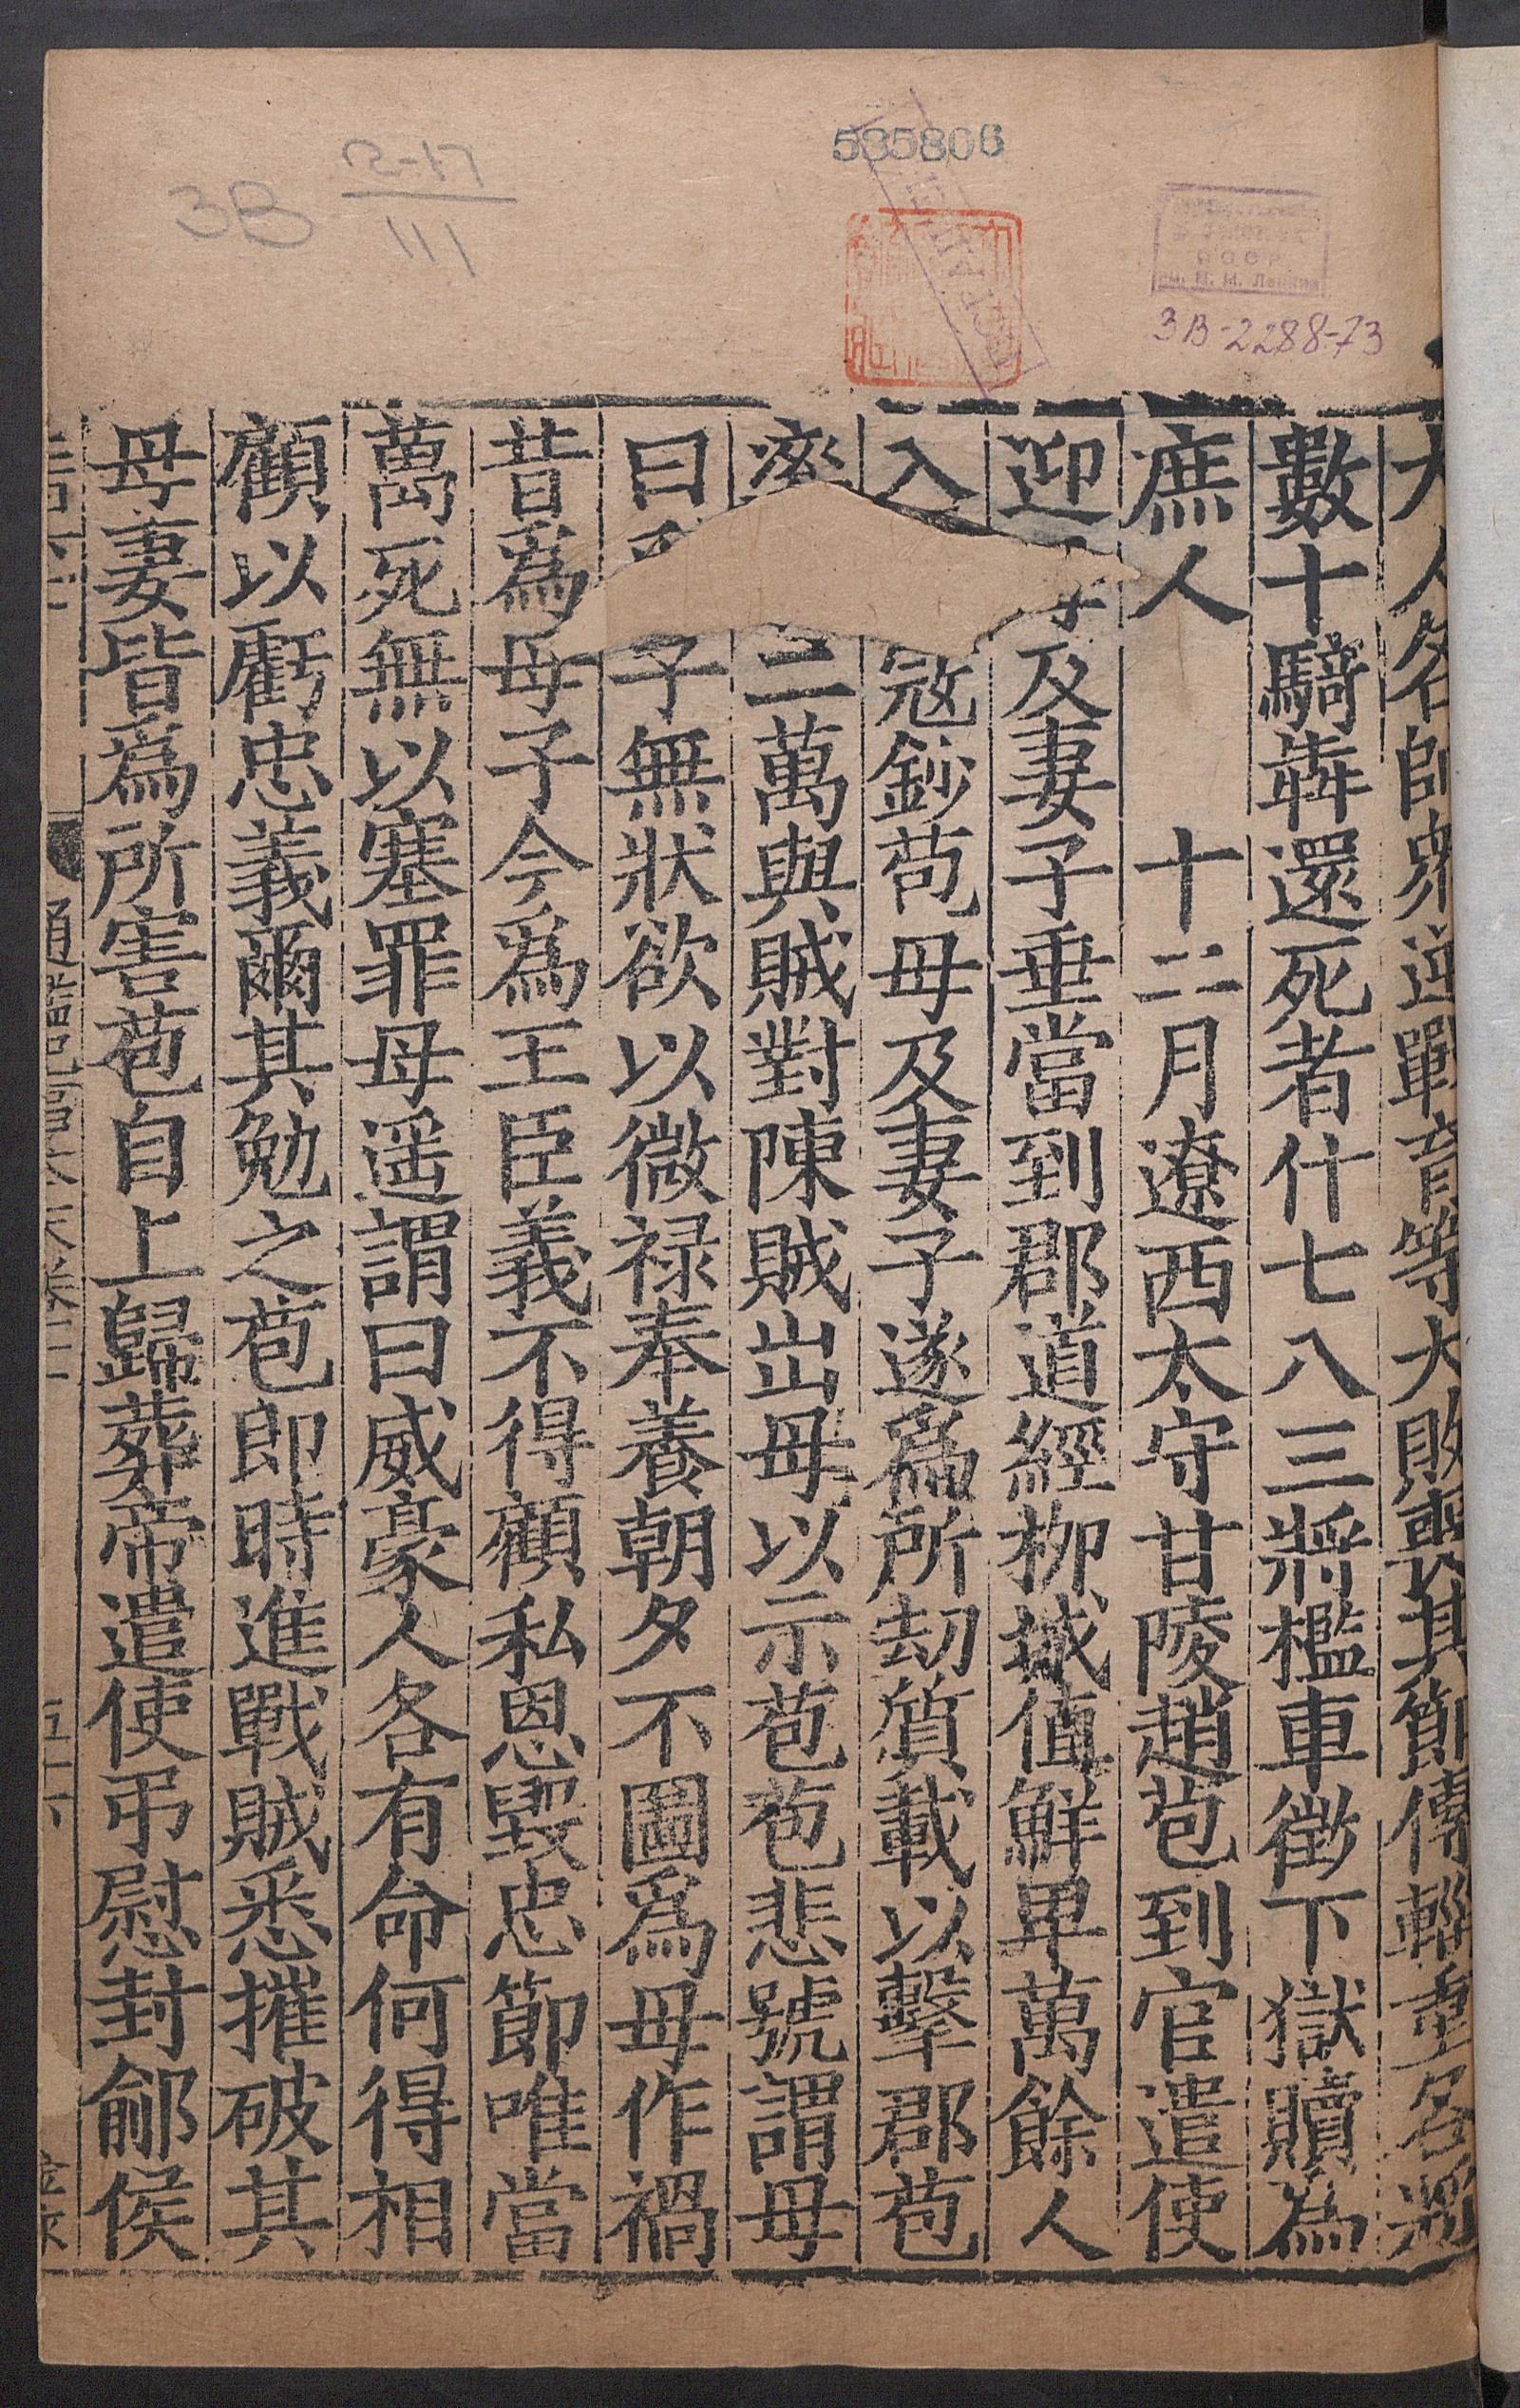 585806
3B 2-17
111
СССР
им. В. И. Ленина
3B-2288-73
大人各帥衆逆戰育等大敗喪其節傳輜重各將
數十騎犇還死者什七八三將檻車徵下獄贖為
庶人 十二月遼西太守甘陵趙苞到官遣使
迎母及妻子垂當到郡道經柳城值鮮卑萬餘人
入寇鈔苞母及妻子遂爲所劫質載以擊郡苞
率二萬與賊對陳賊出母以示苞苞悲號謂母
曰子無狀欲以微禄奉養朝夕不圖爲母作禍
昔爲母子今爲王臣義不得顧私恩毁忠節唯當
萬死無以塞罪母遥謂曰威豪人各有命何得相
顧以虧忠義爾其勉之苞即時進戰賊悉摧破其
母妻皆爲所害苞自上歸葬帝遣使弔慰封鄃侯